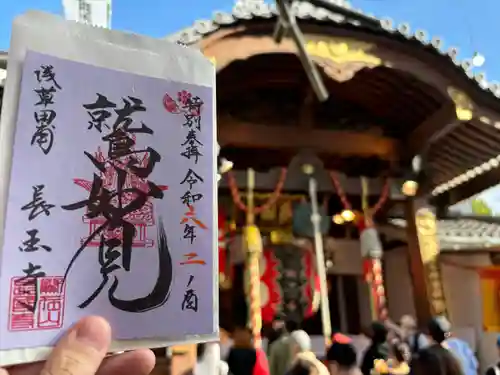 特別参拝 令和六年二ノ酉
鷲妙見
浅草田甫
長国寺